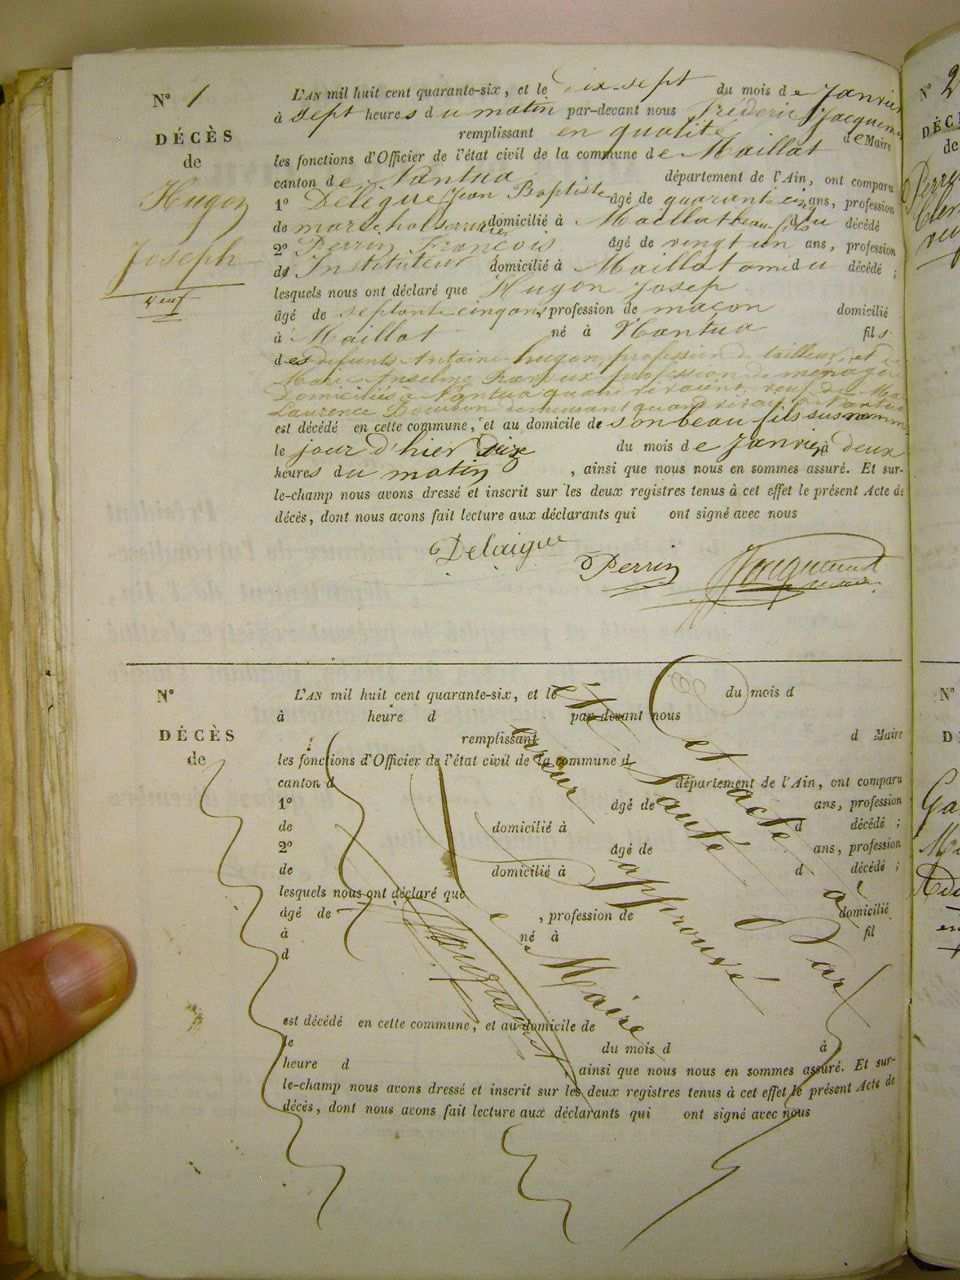 N° 1
DÉCÈS
de
Hugon
Joseph
veuf
L'AN mil huit cent quarante-six, et le Dix sept du mois de Janvier
à sept heures du matin par-devant nous frédéric Jacquemet
remplissant en qualité de Maire
les fonctions d'Officier de l'état civil de la commune de Maillat
canton de Nantua département de l'Ain, ont comparu
1° Delègue Jean Baptiste âgé de quarante cinq ans, profession
de marechal serrurier domicilié à Maillat beau fils du décédé
2° Perrin François âgé de vingt un ans, profession
de Instituteur domicilié à Maillat ami du décédé ;
lesquels nous ont déclaré que Hugon Josep
âgé de septante cinq ans profession de maçon domicilié
à Maillat né à Nantua fils
des defunts Antoine hugon profession de tailleur et de
Marie profession de menagère
Domiciliés à Nantua quand ils vivaient, veuf de
Laurence Bourbon demeurant quand vivait à Nantua
est décédé en cette commune, et au domicile de son beau fils susnommé
le jour d'hier Seize du mois de Janvier à deux
heures du matin , ainsi que nous nous en sommes assuré. Et sur-
le-champ nous avons dressé et inscrit sur les deux registres tenus à cet effet le présent Acte de
décès, dont nous avons fait lecture aux déclarants qui ont signé avec nous
Delaigue
Perrin
Jacquemet
maire
N°
DÉCÈS
de
L'AN mil huit cent quarante-six, et le du mois d
à heure d par-devant nous
remplissant d Maire
les fonctions d'Officier de l'état civil de la commune d
canton d département de l'Ain, ont comparu
1° âgé de ans, profession
de domicilié à d décédé ;
2° âgé de ans, profession
de domicilié à d décédé ;
lesquels nous ont déclaré que
âgé de , profession de domicilié
à né à fil
d
est décédé en cette commune, et au domicile de
le du mois d à
heure d , ainsi que nous nous en sommes assuré. Et sur-
le-champ nous avons dressé et inscrit sur les deux registres tenus à cet effet le présent Acte de
décès, dont nous avons fait lecture aux déclarants qui ont signé avec nous
Cet acte à
été sauté par
erreur approuvé
Le Maire
Jacquemet
N° 2